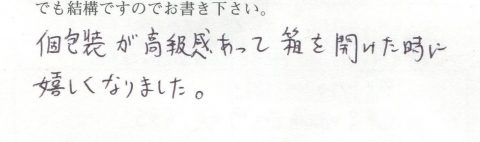 でも結構ですのでお書き下さい。
個包装が高級感あって箱を開けた時に
嬉しくなりました。